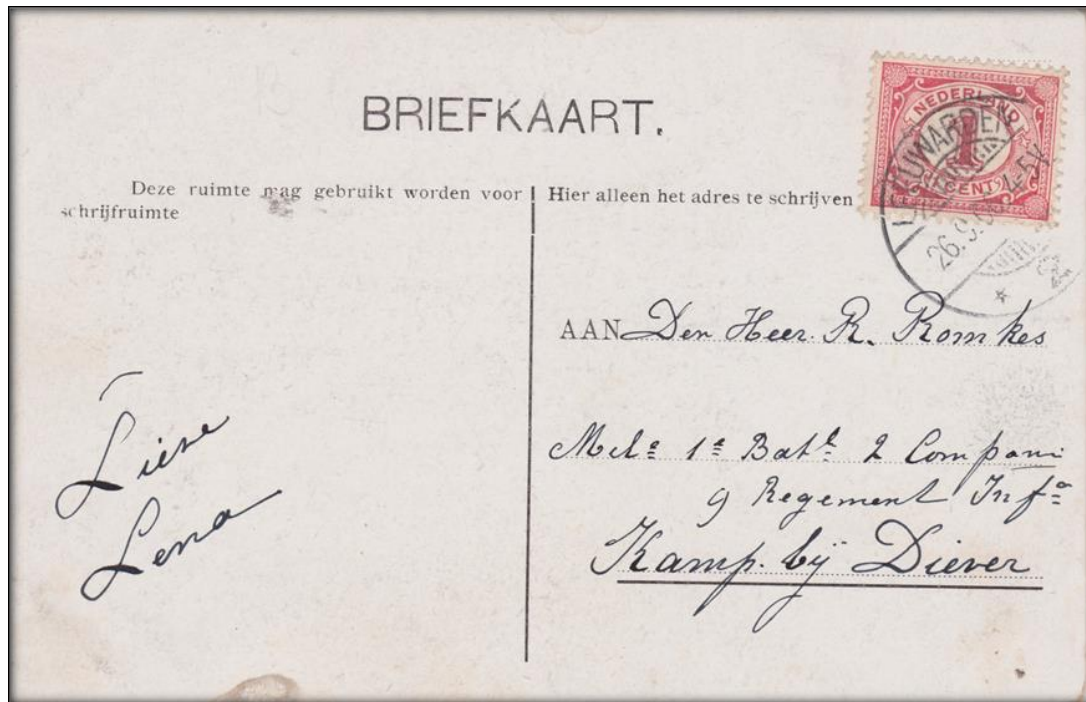 BRIEFKAART.
Deze ruimte mag gebruikt worden voor
schrijfruimte
Hier alleen het adres te schrijven
NEDERLAND
1
CENT
LEEUWARDEN
4-5V
26.9.
AAN Den Heer R. Romkes
1e Batl 2 Compani
9 Regement Infa
Kamp. bij Diever
Lena